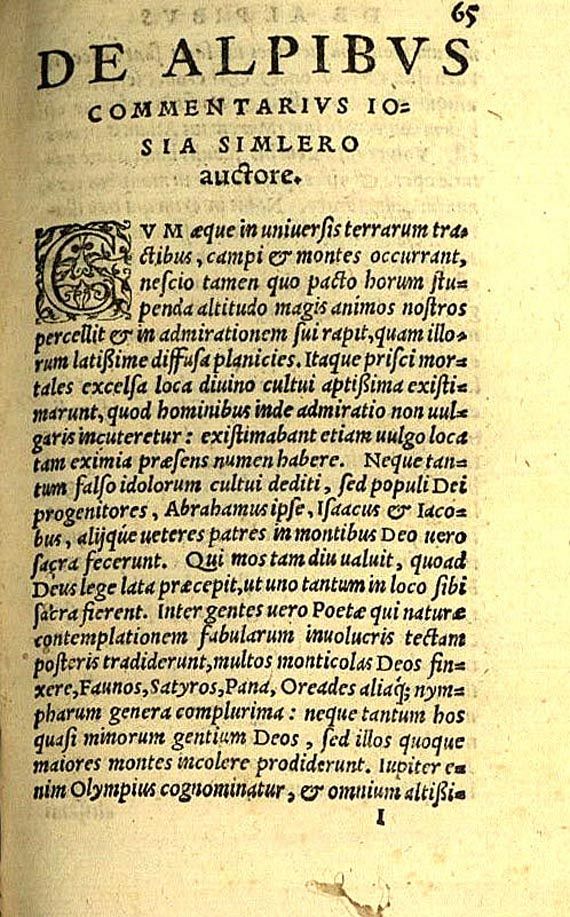 65
DE ALPIBVS
COMMENTARIVS IO=
SIA SIMLERO
auctore.
CVM æque in uniuersis terrarum tra=
ctibus, campi & montes occurrant,
nescio tamen quo pacto horum stu=
penda altitudo magis animos nostros
percellit & in admirationem sui rapit, quam illo=
rum latißime diffusa planicies. Itaque prisci mor=
tales excelsa loca diuino cultui aptißima existi=
marunt, quod hominibus inde admiratio non uul=
garis incuteretur: existimabant etiam uulgo loca
tam eximia præsens numen habere. Neque tan=
tum falso idolorum cultui dediti, sed populi Dei
progenitores, Abrahamus ipse, Isaacus & Iaco=
bus, alijq́ue ueteres patres in montibus Deo uero
sacra fecerunt. Qui mos tam diu ualuit, quoad
Deus lege lata præcepit, ut uno tantum in loco sibi
sacra fierent. Inter gentes uero Poetæ qui naturæ
contemplationem fabularum inuolucris tectam
posteris tradiderunt, multos monticolas Deos fin=
xere, Faunos, Satyros, Pana, Oreades aliaq́; nym=
pharum genera complurima: neque tantum hos
quasi minorum gentium Deos, sed illos quoque
maiores montes incolere prodiderunt. Iupiter e=
nim Olympius cognominatur, & omnium altißi=
I